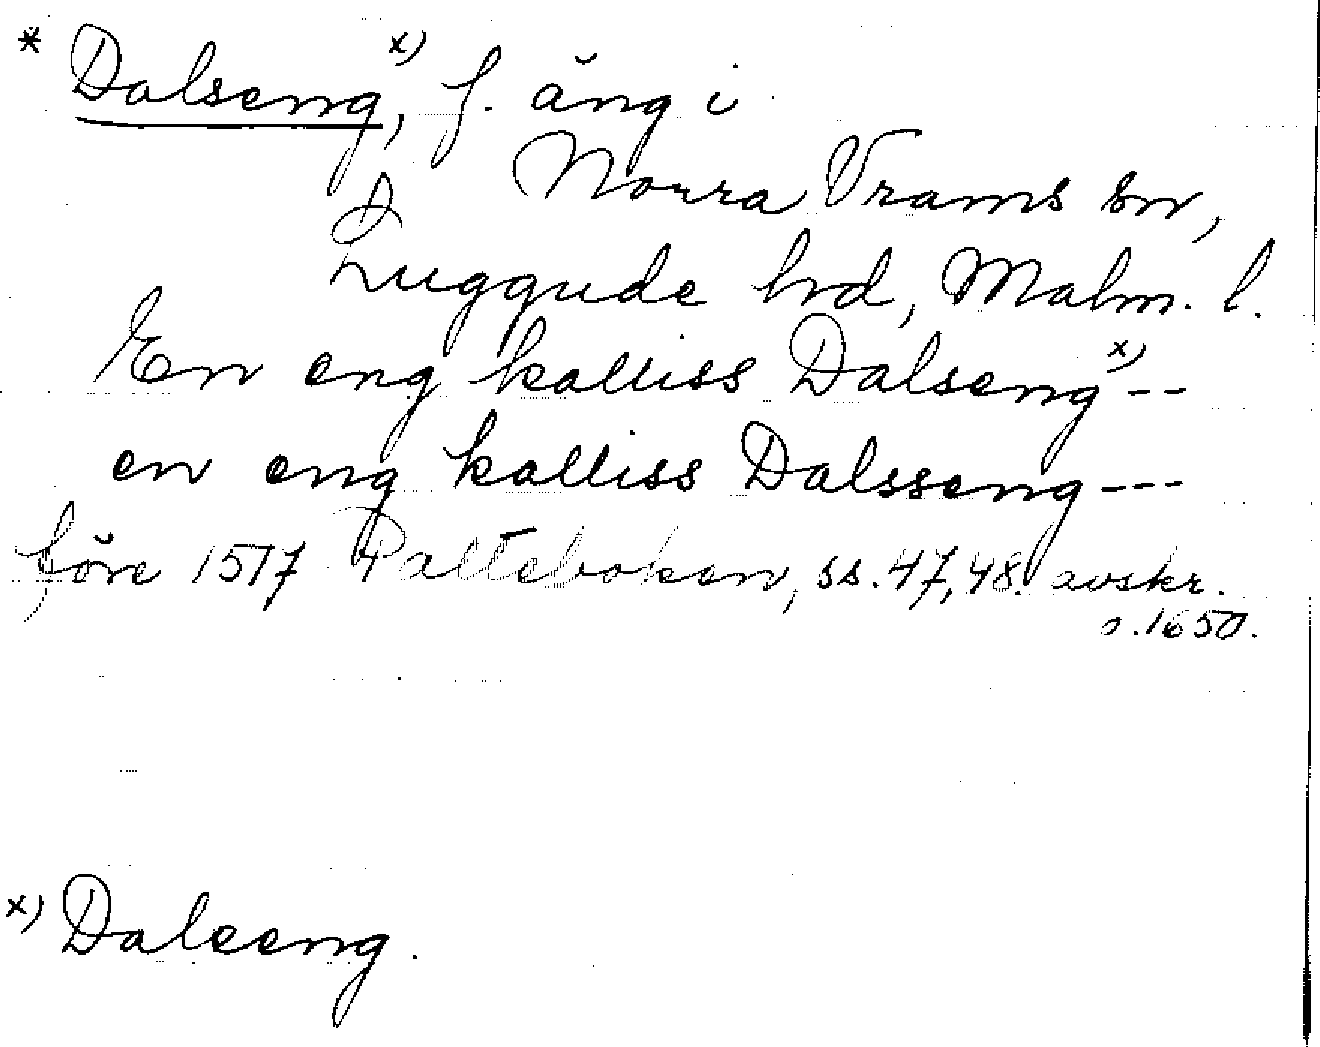 * Dalseng, x) f. äng i
Norra Vrams sn,
Luggude hd, Malm. l.
En eng kalliss Dalseng x) --
en eng kalliss Dalsseng ---
före 1517 Palteboken, ss. 47, 48. avskr.
o. 1650.
x) Daleeng.